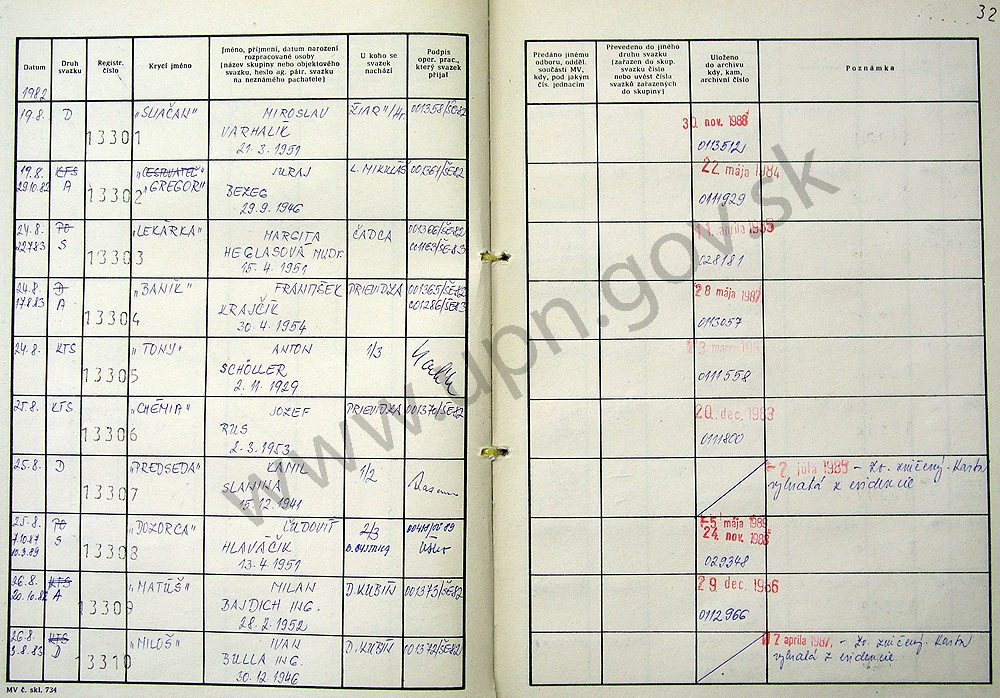 32
Datum
Druh svazku
Registr. číslo
Krycí jméno
Jméno, příjmení, datum narození rozpracované osoby (název skupiny nebo objektového svazku, heslo ag. pátr. svazku na neznámého pachatele)
U koho se svazek nachází
Podpis oper. prac., který svazek přijal
Předáno jinému odboru, odděl. součásti MV, kdy, pod jakým čís. jednacím
Převedeno do jiného druhu svazku (zařazen do skup. svazku číslo nebo uvést čísla svazků zařazených do skupiny)
Uloženo do archivu kdy, kam, archivní číslo
Poznámka
1982
19.8. D 13301 "SLIAČAN" MIROSLAV 001358/ŠE82 30. nov. 1988
VARHALÍK 0113512
21.3.1951
19.8. KTS JURAJ L. MIKULÁŠ 001361/ŠE82 22. mája 1984
29.10.82 A 13302 "GREGOR" BEZEG 0111929
29.9.1946
24.8. PO "LEKÁRKA" MARGITA ČADCA 001366/ŠE82 apríla
S 13303 HEGLASOVÁ MUDr. 028181
15.4.1951
24.8. D "BANÍK" FRANTIŠEK PRIEVIDZA 001365/ŠE82 28 mája 1987
17.8.83 A 13304 KRAJČÍK 001286/ŠE83 0113057
30.4.1954
24.8. KTS "TONY" ANTON 1/3
13305 SCHÖLLER 0111558
2.11.1929
25.8. KTS "CHÉMIA" JOZEF PRIEVIDZA 001370/ŠE82 20. dec. 1983
13306 RUS 0111800
2.3.1953
25.8. D "PREDSEDA" KAMIL 1/2 2. júla 1985 - Zv. zničený. Karta
13307 SLANINA vybratá z evidencie
15.12.1941
25.8. PO "DOZORCA" ĽUDOVÍT 2/3 5. mája 1989
7.10.87 S 13308 HLAVÁČIK 24. nov. 1988
13.4.1951 029348
26.8. KTS "MATÚŠ" MILAN D. KUBÍN 001373/ŠE82 29. dec. 1986
20.10.82 A 13309 BAJDICH ING. 0112966
28.2.1952
26.8. KTS "MILOŠ" IVAN D. KUBÍN 001372/ŠE82 apríla 1987, - Zv. zničený. Karta
3.8.83 D 13310 BULLA ING. vybratá z evidencie
30.12.1946
MV č. skl. 734
www.upn.gov.sk